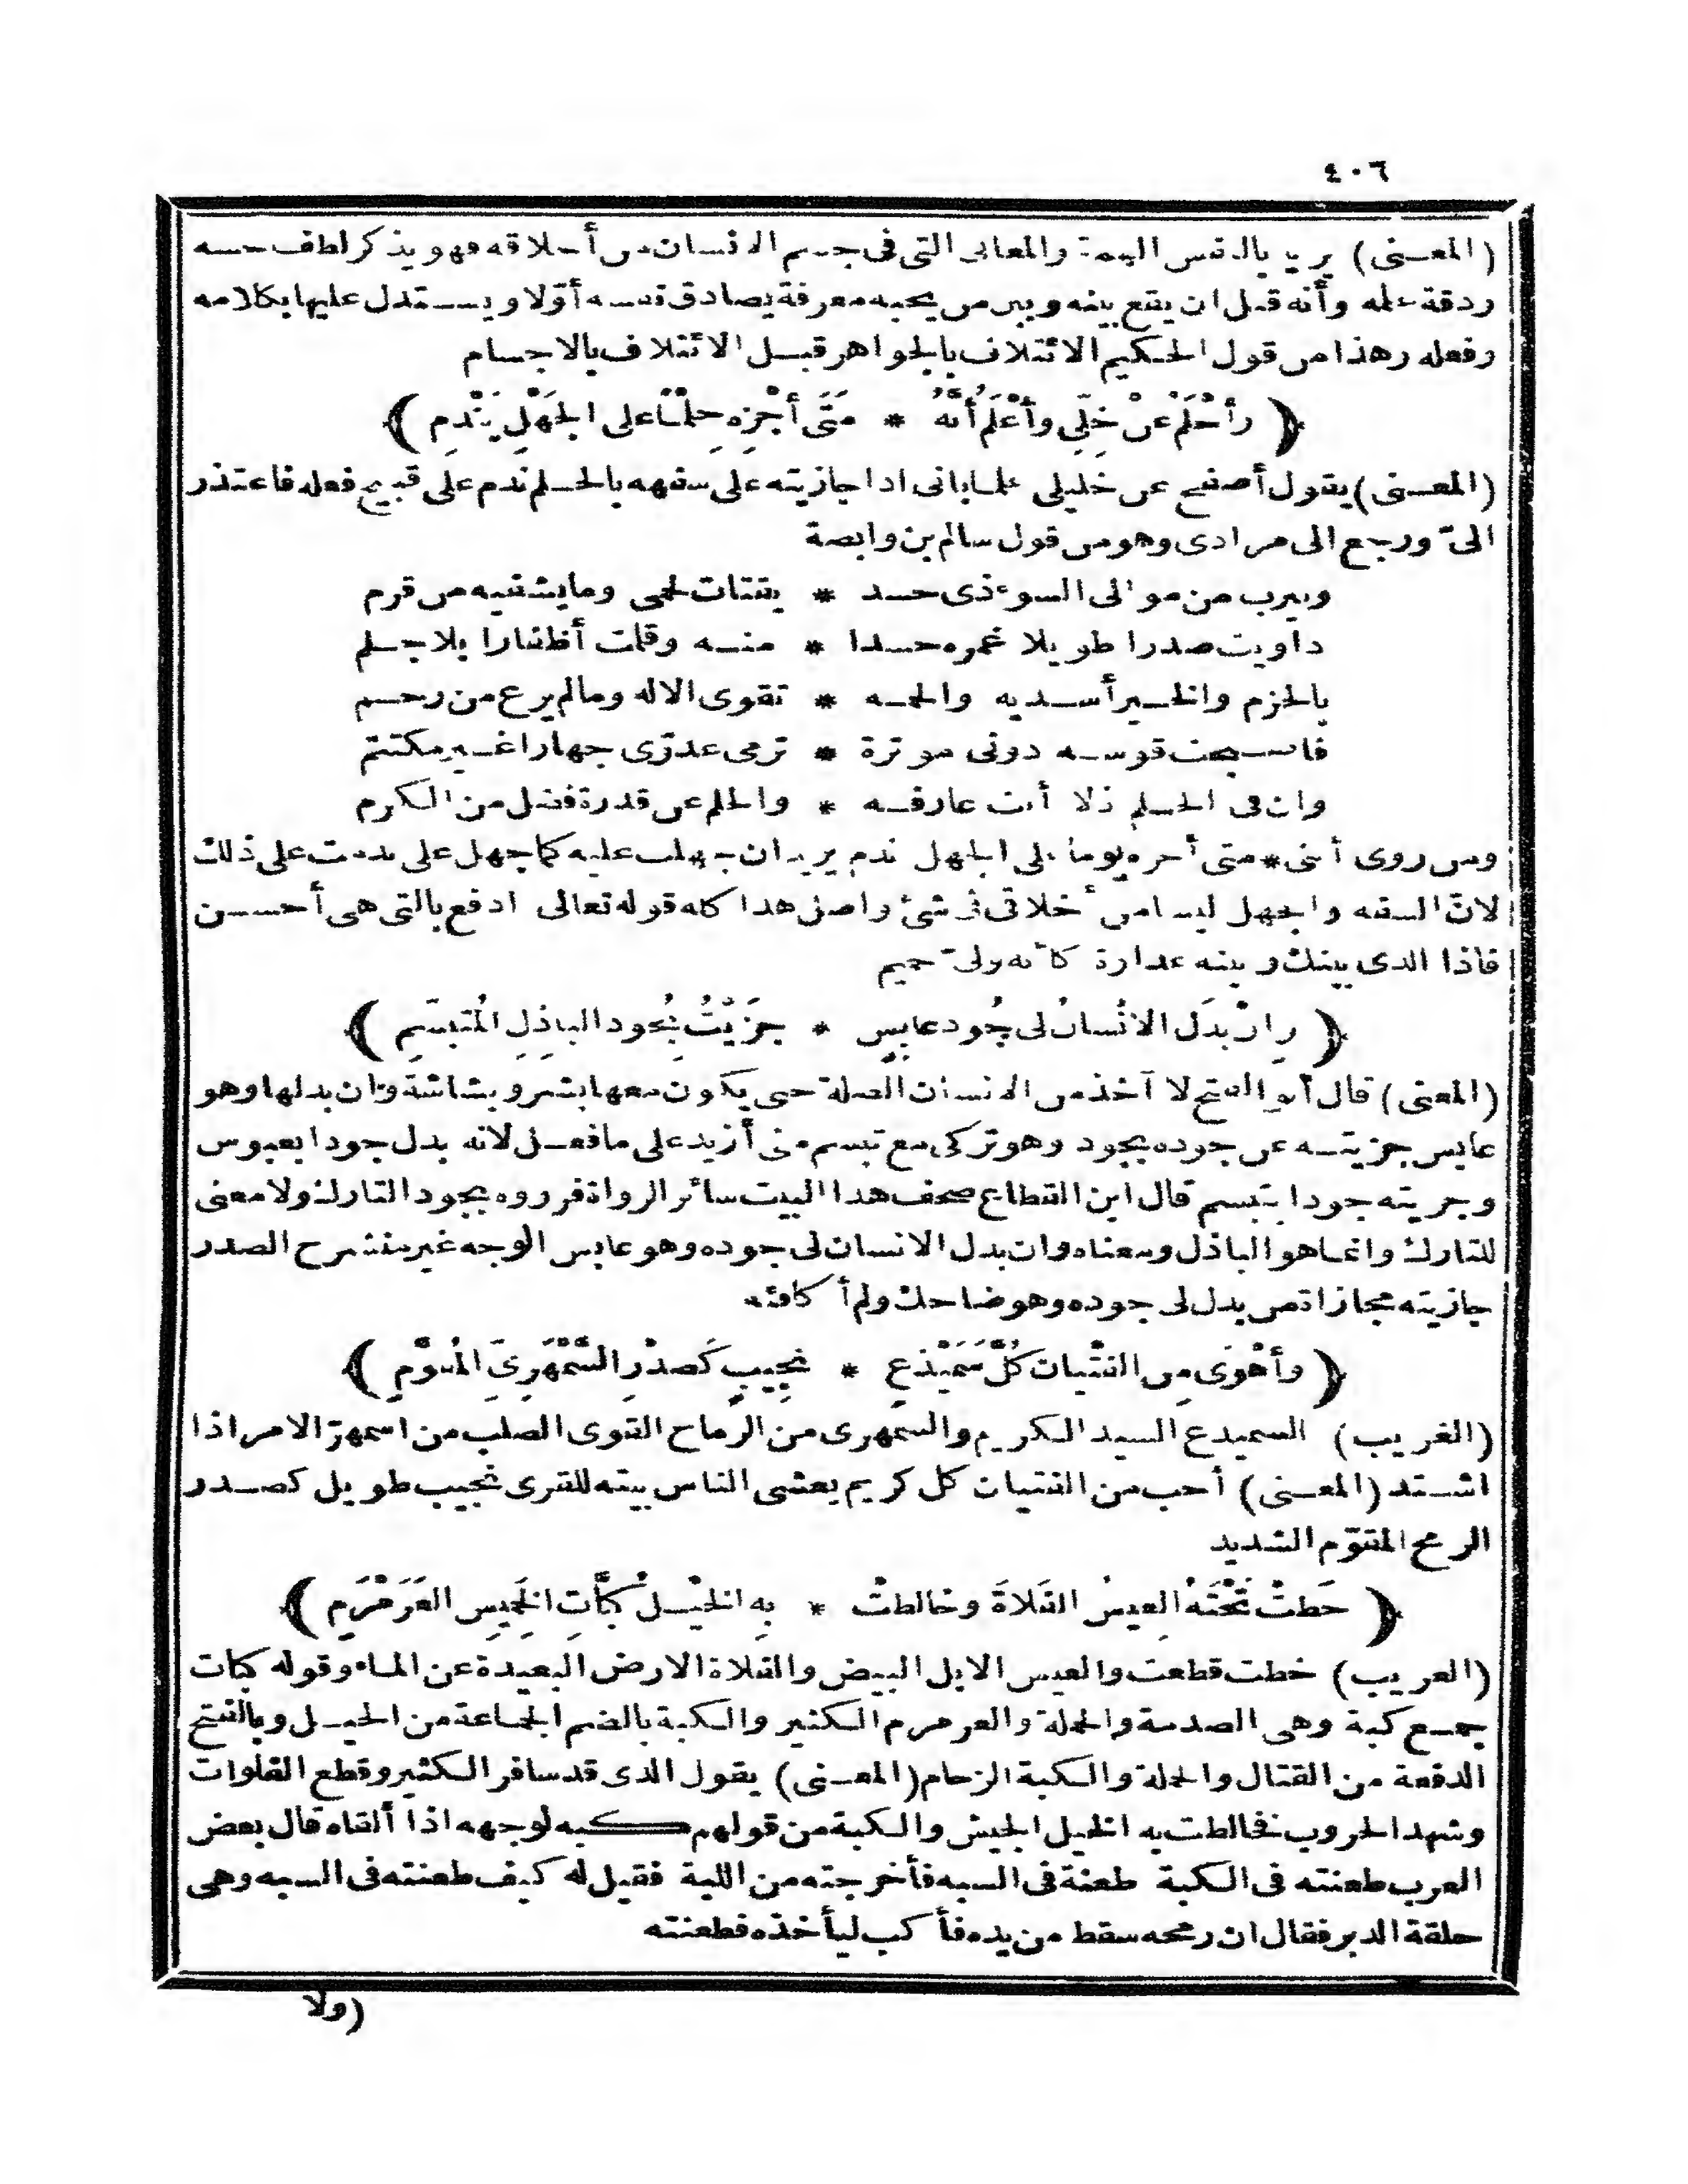 ٤٠٦
(المعنى) يريد بالنفس الهمة والمعانى التى فى جسم الانسان من أخلاقه فهو يذكر لطف حسه
ودقة علمه وأنه قبل ان يقع بينه وبين من يحبه معرفة يصادق نفسه أوّلا ويستدل عليها بكلامه
وفعله وهذا من قول الحكيم الائتلاف بالجواهر قبل الائتلاف بالاجسام
(وأَحْلُمُ عنْ خِلِّى وأَعْلَمُ أَنّهُ * مَتَى أَجْزِهِ حِلْمًا على الجَهْلِ يَنْدَمِ)
(المعنى) يقول أصفح عن خليلى علما بانى اذا جازيته على سفهه بالحلم ندم على قبيح فعله فاعتذر
الىّ ورجع الى مرادى وهو من قول سالم بن وابصة
ونيرب من موالى السوء ذى حسد * يقتات لحمى وما يشفيه من قرم
داويت صدرا طويلا غمره حسدا * منه وقلمت أظفارا بلا جلم
بالحزم والخير أسديه والحمه * تقوى الاله ومالم يرع من رحم
فاصبحت قوسه دونى موترة * ترمى عدوّى جهارا غير مكتتم
وان فى الحلم ذلا أنت عارفه * والحلم عن قدرة فضل من الكرم
ومن روى أننى * متى أجزه يوما على الجهل أندم يريد ان جهلت عليه كما جهل على ندمت على ذلك
لانّ السفه والجهل ليسا من أخلاقى فى شئ وأصل هذا كله قوله تعالى ادفع بالتى هى أحسن
فاذا الذى بينك وبينه عداوة كأنه ولىّ حميم
(وإنْ بَذَلَ الانْسانُ لى جُودَ عابِسٍ * جَزَيْتُ بِجُودِ الباذِلِ المُتَبَسِّمِ)
(المعنى) قال أبو الفتح لا آخذ من الانسان الصلة حتى يكون معها بشر وبشاشة وان بذلها وهو
عابس جزيته عن جوده بجود وهو تركى مع تبسم منى أزيد على مافعل لانه بذل جودا بعبوس
وجزيته جودا بتبسم قال ابن القطاع صحف هذا البيت سائر الرواة فرووه بجود التارك ولا معنى
للتارك وانما هو الباذل ومعناه وان بذل الانسان لى جوده وهو عابس الوجه غير منشرح الصدر
جازيته مجازاة من بذل لى جوده وهو ضاحك ولم أكافئه
(وأَهْوَى مِن الفِتْيانِ كُلَّ سَمَيْذَعٍ * نَجِيبٍ كَصَدْرِ السَّمْهَرِىِّ المُقَوَّمِ)
(الغريب) السميدع السيد الكريم والسمهرى من الرماح القوى الصلب من اسمهرّ الامر اذا
اشتد (المعنى) أحب من الفتيان كل كريم يغشى الناس بيته للقرى نجيب طويل كصدر
الرمح المقوّم الشديد
(خَطَتْ تَحْتَهُ العِيسُ الفَلاةَ وخالطَتْ * بِهِ الخَيْلُ كَبَّاتِ الخَمِيسِ العَرَمْرَمِ)
(الغريب) خطت قطعت والعيس الابل البيض والفلاة الارض البعيدة عن الماء وقوله كبات
جمع كبة وهى الصدمة والحملة والعرمرم الكثير والكبة بالضم الجماعة من الخيل وبالفتح
الدفعة من القتال والحملة والكبة الزحام (المعنى) يقول الذى قد سافر الكثير وقطع الفلوات
وشهد الحروب فخالطت به الخيل الجيش والكبة من قولهم كبه لوجهه اذا ألقاه قال بعض
العرب طعنته فى الكبة طعنة فى السبه فأخرجته من اللبة فقيل له كيف طعنته فى السبه وهى
حلقة الدبر فقال ان رمحه سقط من يده فأكب ليأخذه فطعنته
(ولا